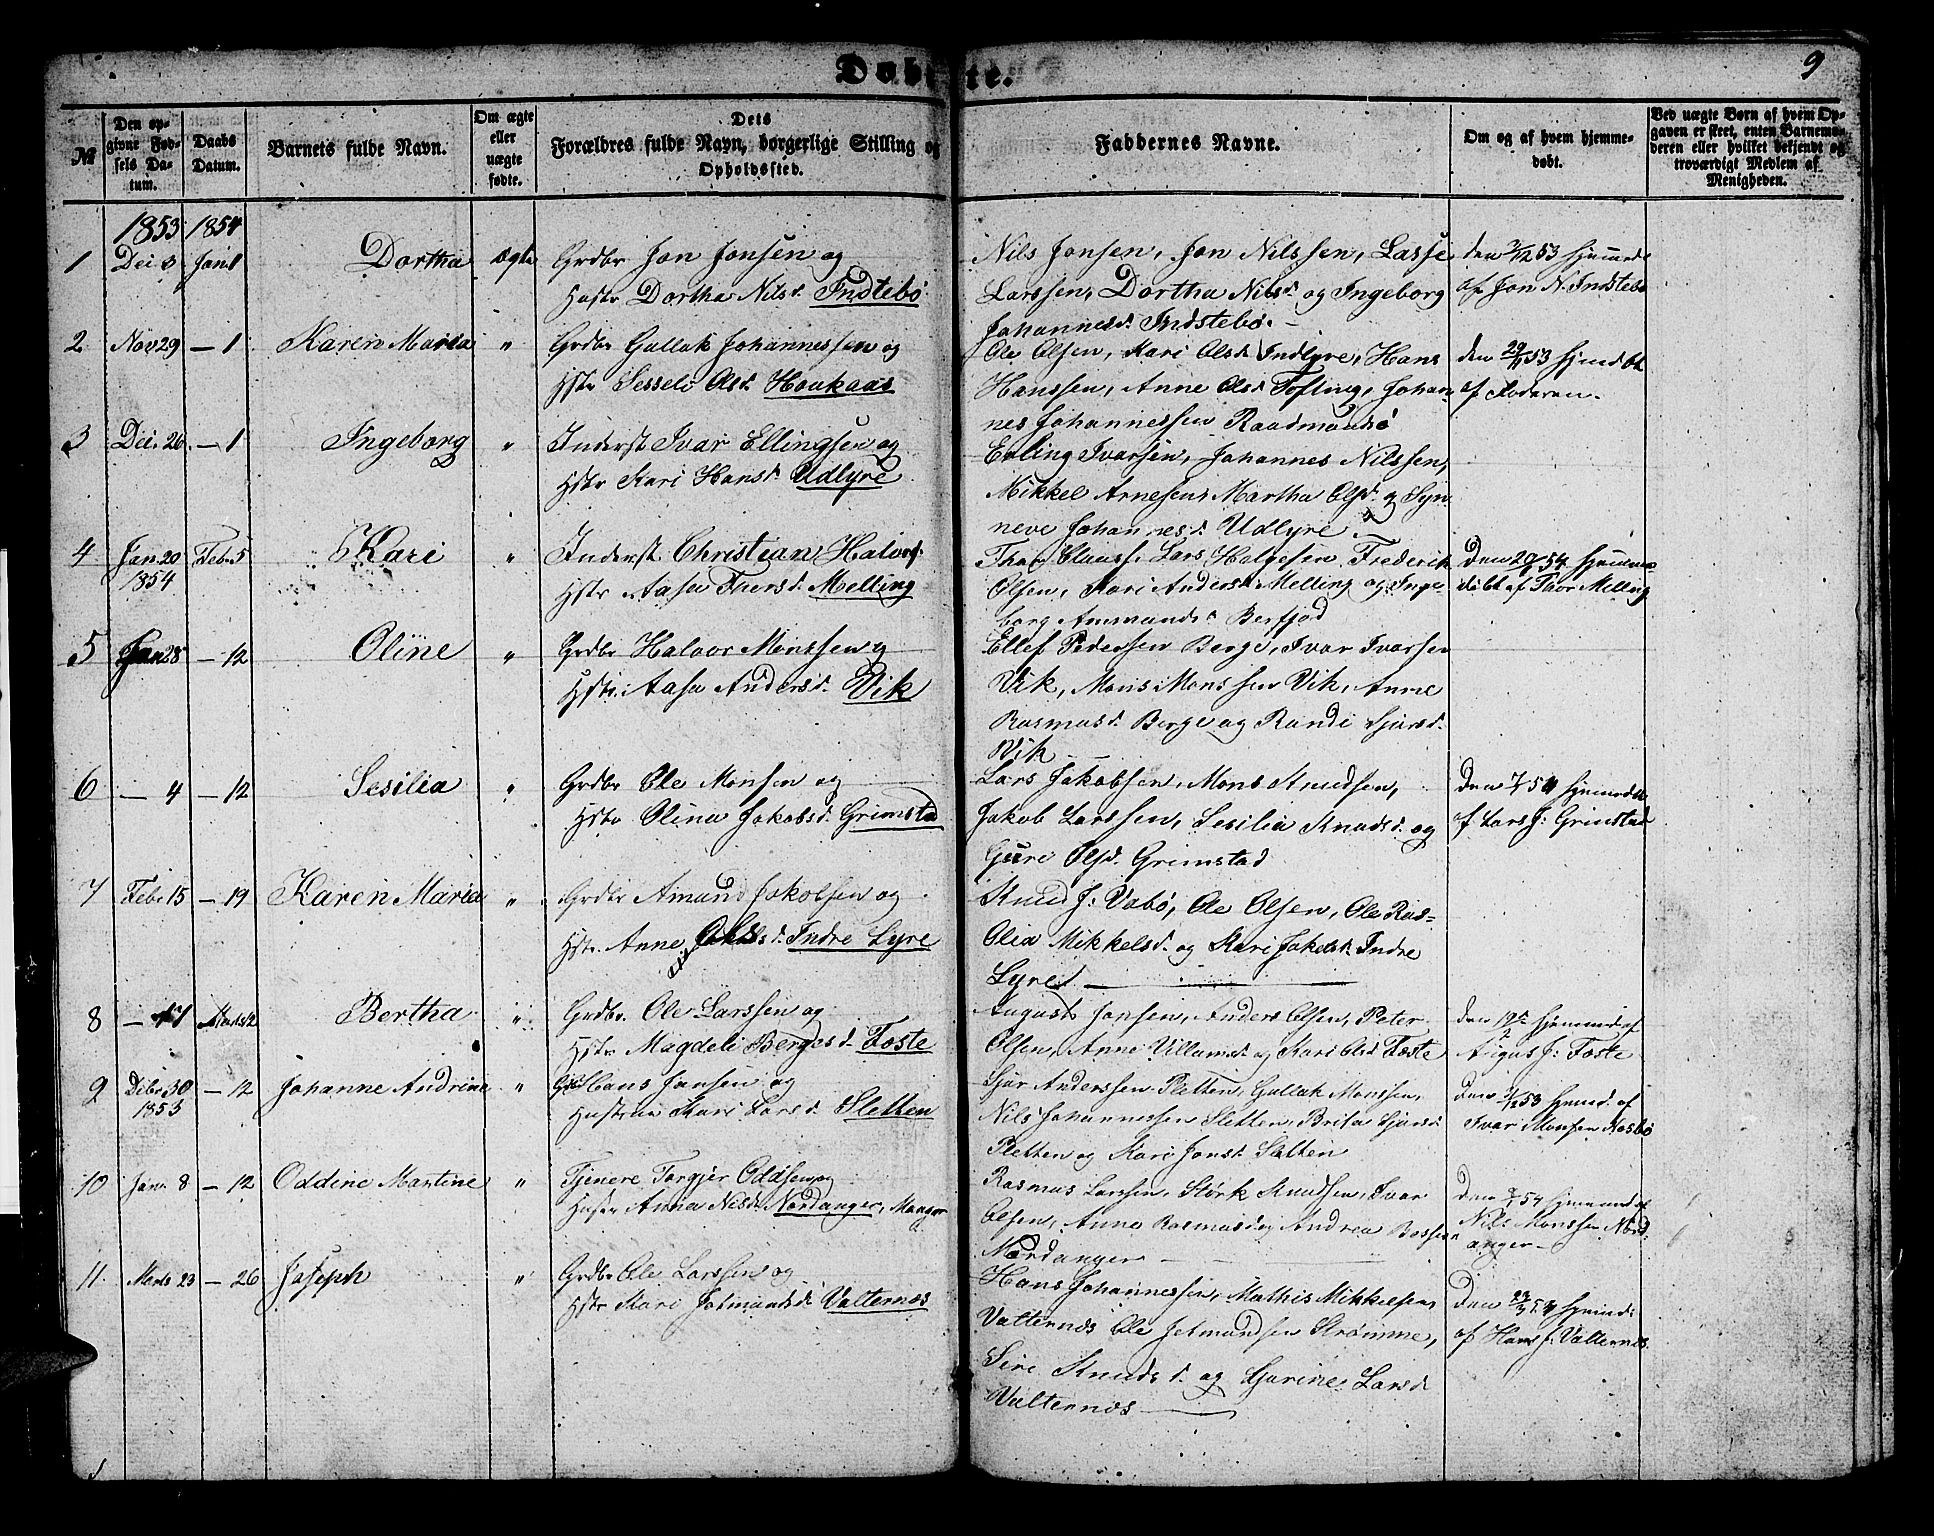 Døbte.
9
№
Den opgivne Fødsels Datum.
Daabs Datum.
Barnets fulde Navn.
Om ægte eller uægte fødte.
Dets Forældres fulde Navn, borgerlige Stilling og Opholdssted.
Faddernes Navne.
Om og af hvem hjemmedøbt.
Ved uægte Børn af hvem Opgaven er skeet, enten Barnemoderen eller hvilket bekjendt og troværdigt Medlem af Menigheden.
1853 1854
1 Dei 3 Jan 1 Dortha ægte Grdbr Jon Jonsen og
Hustr Dortha Nilsd. Indtebø
Nils Jonsen, Jon Nilssen, Lasse
Larssen, Dortha Nilsd og Ingeborg
Johannesd. Indstebø.
den 3/12 53 hjemmed
af Jon N. Indstebø
2 Nov 29 — 1 Karen Maria " Grdbr Gullak Johannessen og
Hstr Sesseli Olsd. Houkaas
Ole Olsen, Kari Olsd Indlyre, Hans
Hanssen, Anne Olsd Tofting, Johan
nes Johannessen
den 29/11 53 hjemdbt
af Faderen.
3 Dei. 26 — 1 Ingeborg " Inderst Ivar Ellingsen og
Hstr Kari Hansd. Udlyre
Erling Ivarsen, Johannes Nilssen,
Mikkel Arnesen, Martha Olsd. og Syn
neve Johannesd. Udlyre
4 Jan. 20 Feb. 5 Kari " Inderst. Christian Halvors.
1854
Hstr Aasa Thersd. Melling
Thor Clauss. Lars Helgesen, Frederik
Olsen, Kari Andersd Melling og Inge-
borg Ammundsd Berfjod
Den 20/1 54 hjemme-
døbt af Thor Melling
5 Jan 28 — 12 Oline " Grdbr Halvor Monssen og
Hstr. Aasa Andersd. Vik
Ellef Pedersen Berge, Ivar Ivarsen
Vik, Mons Monssen Vik, Anne
Rasmusd. Berge og Randi Sjursd.
Vik
6 — 4 — 12 Sesilia " Grdbr Ole Monsen og
Hstr Olina Jakobsd. Grimstad
Lars Jakobsen, Mons Knudsen,
Jakob Larssen, Sesilia Knudsd. og
Guri Olsd. Grimstad
Den 54 hjemmedøbt
af Lars J. Grimstad
7 Feb. 15 — 19 Karen Maria " Grdbr Amund Jakobsen og
Hstr. Anne Indre Lyre
Knud J. Vabø, Ole Olsen, Ole Ras-
Olia Mikkelsd. og Kari Jakobsd. Indre
Lyre
8 — 17 Marts 12 Bertha " Grdbr. Ole Larssen og
Hstr Magdeli Bergesd. Toste
August Jonsen, Anders Olsen, Peter
Olsen, Anne Villumsd og Kari Olsd Toste
den 19de/2 hjemmed af
Augus J. Toste
9 Dcbr 30 — 12 Johanne Andrine " Grdbr Hans Jansen og
1853
Hustrue Kari Larsd. Sletten
Sjur Anderssen Sletten, Gullak Monssen,
Nils Johannessen Sletten, Brita Sjursd
Sletten og Kari Jonsd. Sletten
Den 53 hjemd. af
Ivar Monsen Rosbø
10 Jan. 8 — 12 Oddine Martine " Tjenere Torgjer Oddsen og
Hustr Anna Nilsd. Nordanger, Manger
Rasmus Larssen, Størk Knudsen, Ivar
Olsen, Anna Rasmusd og Andrea Bossen
Nordanger
Den 54 hjemmed af
Nils Monssen Nord
anger
11. Marts 23 — 26 Joseph " Grdbr Ole Larssen og
Hstr Kari Jetmundsd. Valternæs
Hans Johannessen, Mathis Mikkelsen,
Valternæs Ole Jetmundsen Strømme,
Siri Knudsd. og Gjorine Larsd
Valternæs
Den 23/3 54 hjemd.
af Hans J. Valternæs